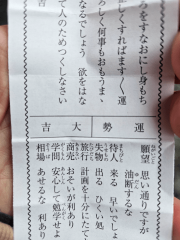 ろをすなおにし身もち
しくすればますく運
なるでしょう 欲をはな
ろしく何事もおもうま、
て人のためつくしなさい
運勢
大吉
願望 思い通りですが
油断するな
待人 来る 早いでしょ
失物 出る ひくい処
旅行 計画を十分にたて
商売 おそいが利あり
学問 安心して勉学せよ
相場 あせるな 利あり